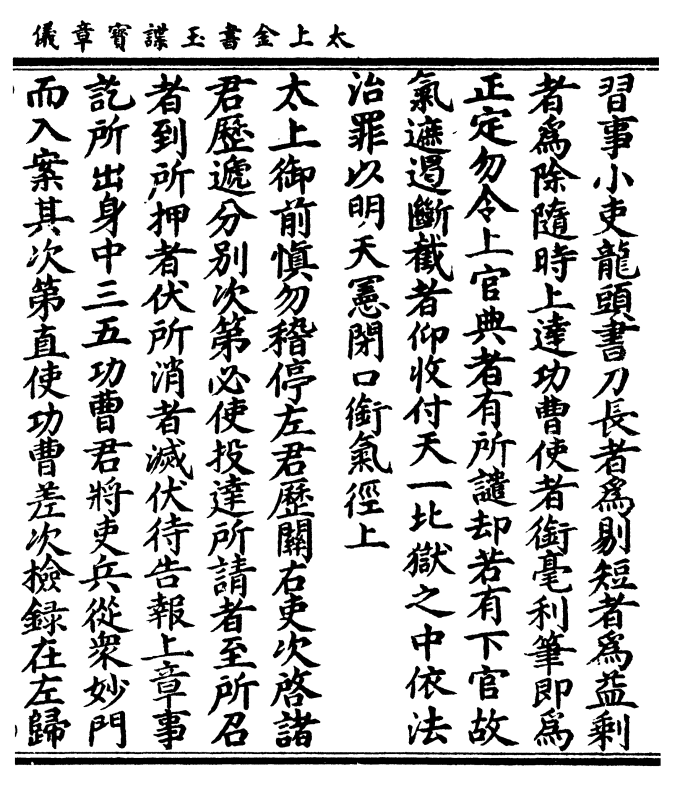 太上金書玉諜寶章儀
習事小吏龍頭書刀長者爲剔短者爲益剩
者爲除隨時上達功曹使者銜毫利筆即爲
正定勿令上官典者有所譴却若有下官故
氣遮遏斷截者仰收付天一北獄之中依法
治罪以明天憲閉口銜氣徑上
太上御前慎勿稽停左君歷關右吏次啓諸
君歷遞分別次第必使投達所請者至所召
者到所押者伏所消者滅伏待告報上章事
訖所出身中三五功曹君將吏兵從衆妙門
而入案其次第直使功曹差次檢録在左歸